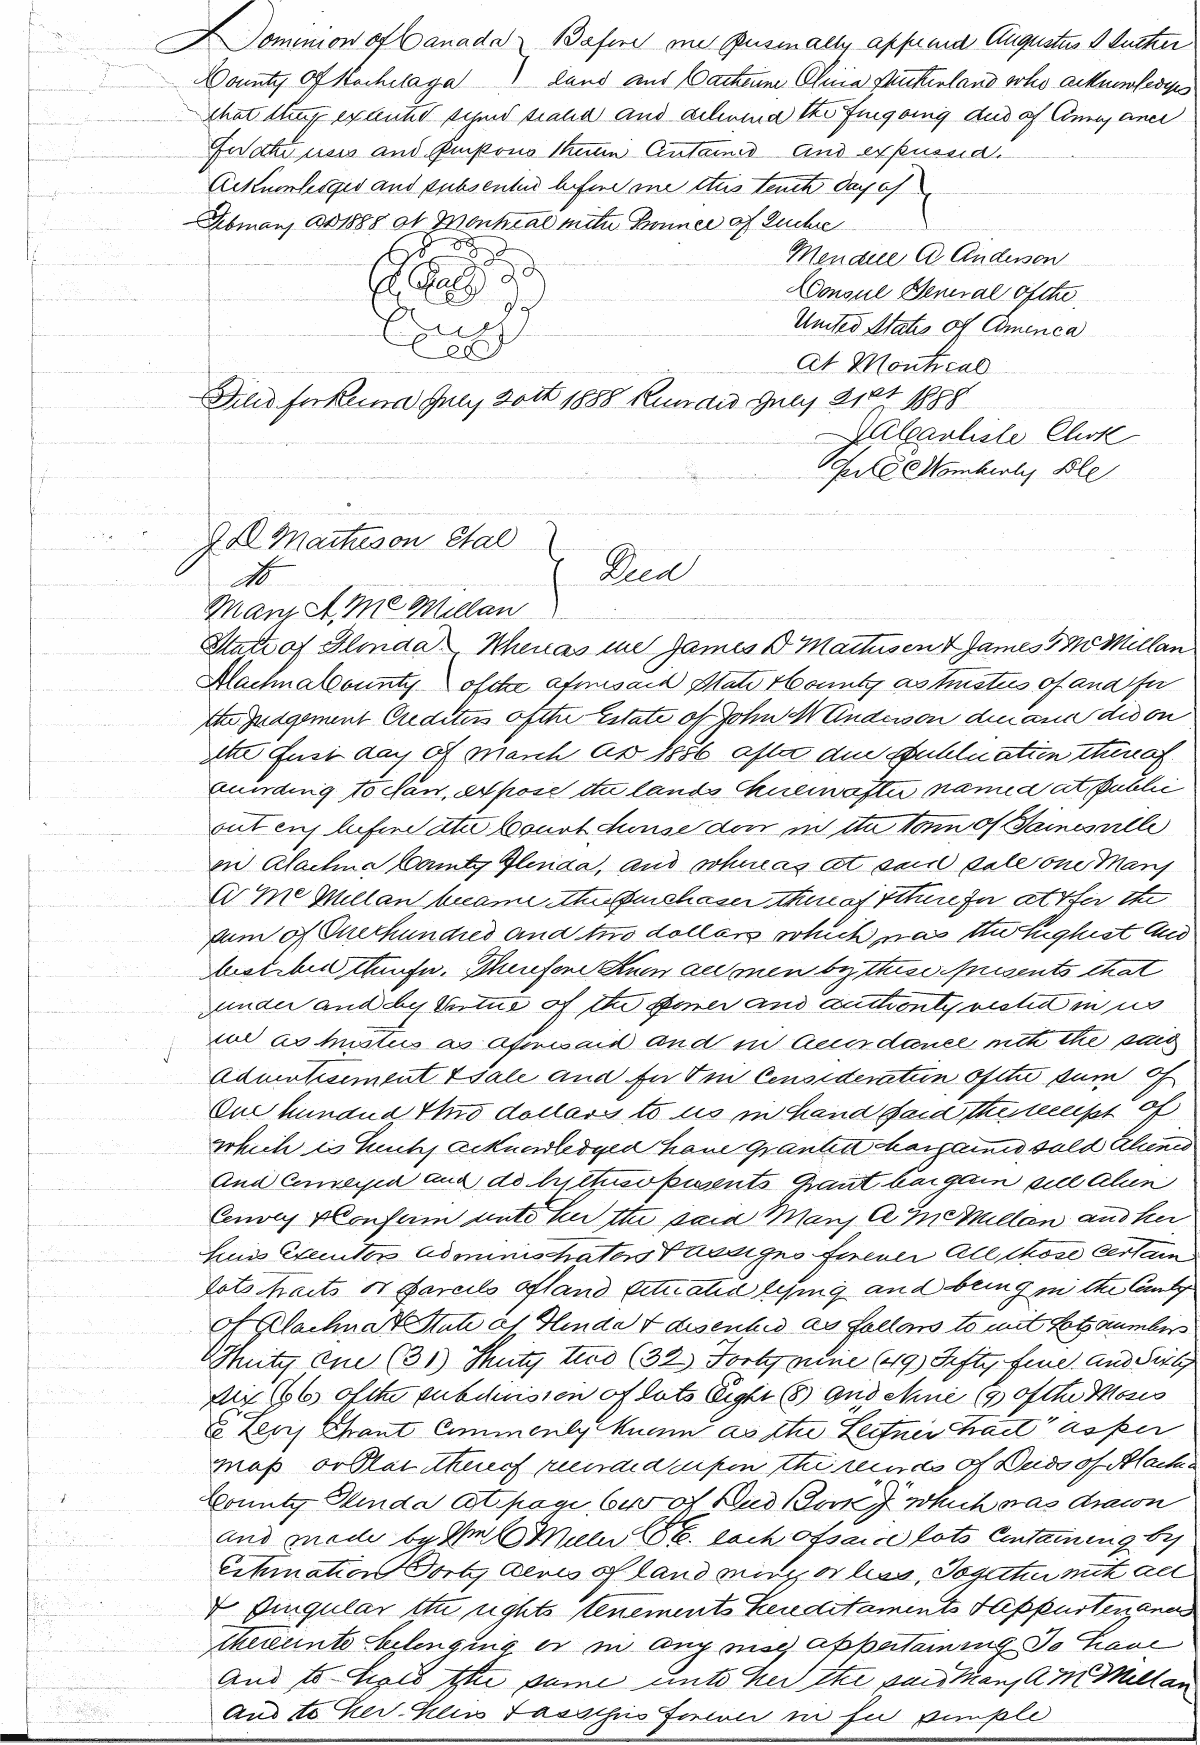 Dominion of Canada } Before me personally appeard Augustus S Suther
County Of Hochelaga } land and Catherine Olivia Sutherland who acknowledges
that they executed signed sealed and delivered the foregoing deed of Conveyance
for the uses and purposes therein Contained and expressed.
Acknowledged and subscribed before me this tenth day of
February AD 1888 at Montreal in the Province of Quebec
Mendell A Anderson
Consul General of the
United States of America
At Montreal
Seal
Filed for Record July 20th 1888 Recorded July 21st 1888
J A Carlisle Clerk
per C C Womberly D C
J D Matheson Etal
to } Deed
Mary A. McMillan
State of Florida } Whereas we James D Matheson & James T McMillan
Alachua County } of the aforesaid State & County as trustees of and for
the Judgement Crediters of the Estate of John W Anderson deceased did on
the first day of March AD 1886 after due publication thereof
according to law, expose the lands hereinafter named at public
out cry before the Court house door in the town of Gainesville
in Alachua County Florida, and whereas at said sale one Mary
A McMillan became the purchaser thereof & therefor at & for the
sum of One hundred and two dollars which was the highest and
best bid therefor. Therefore Know all men by these presents that
under and by Virtue of the power and authority vested in us
we as trustees as aforesaid and in accordance with the said
advertisement & sale and for & in Consideration of the sum of
One hundred & two dollars to us in hand paid the receipt of
which is hereby acknowledged have granted bargained sold aliened
and Conveyed and do by these presents grant bargain sell alien
Convey & Confirm unto her the said Mary A McMillan and her
heirs Executors administrators & assigns forever All those certain
lots tracts or parcels of land situated lying and being in the County
of Alachua & State of Florida & described as follows to wit Lots numbers
Thirty One (31) Thirty two (32) Forty nine (49) Fifty five and Sixty
six (66) of the subdivision of lots Eight (8) and Nine (9) of the Moses
E Levy Grant Commonly Known as the "Leitner tract" as per
map or Plat thereof recorded upon the records of Deeds of Alachua
County Florida At page 600 of Deed Book "J" which was drawn
and made by Wm C Miller C.E. each of said lots Containing by
Estimation Forty acres of land more or less, Together with all
& singular the rights tenements hereditaments & appurtenances
thereunto belonging or in any wise appertaining To have
and to hold the same unto her the said Mary A McMillan
and to her heirs & assigns forever in fee simple